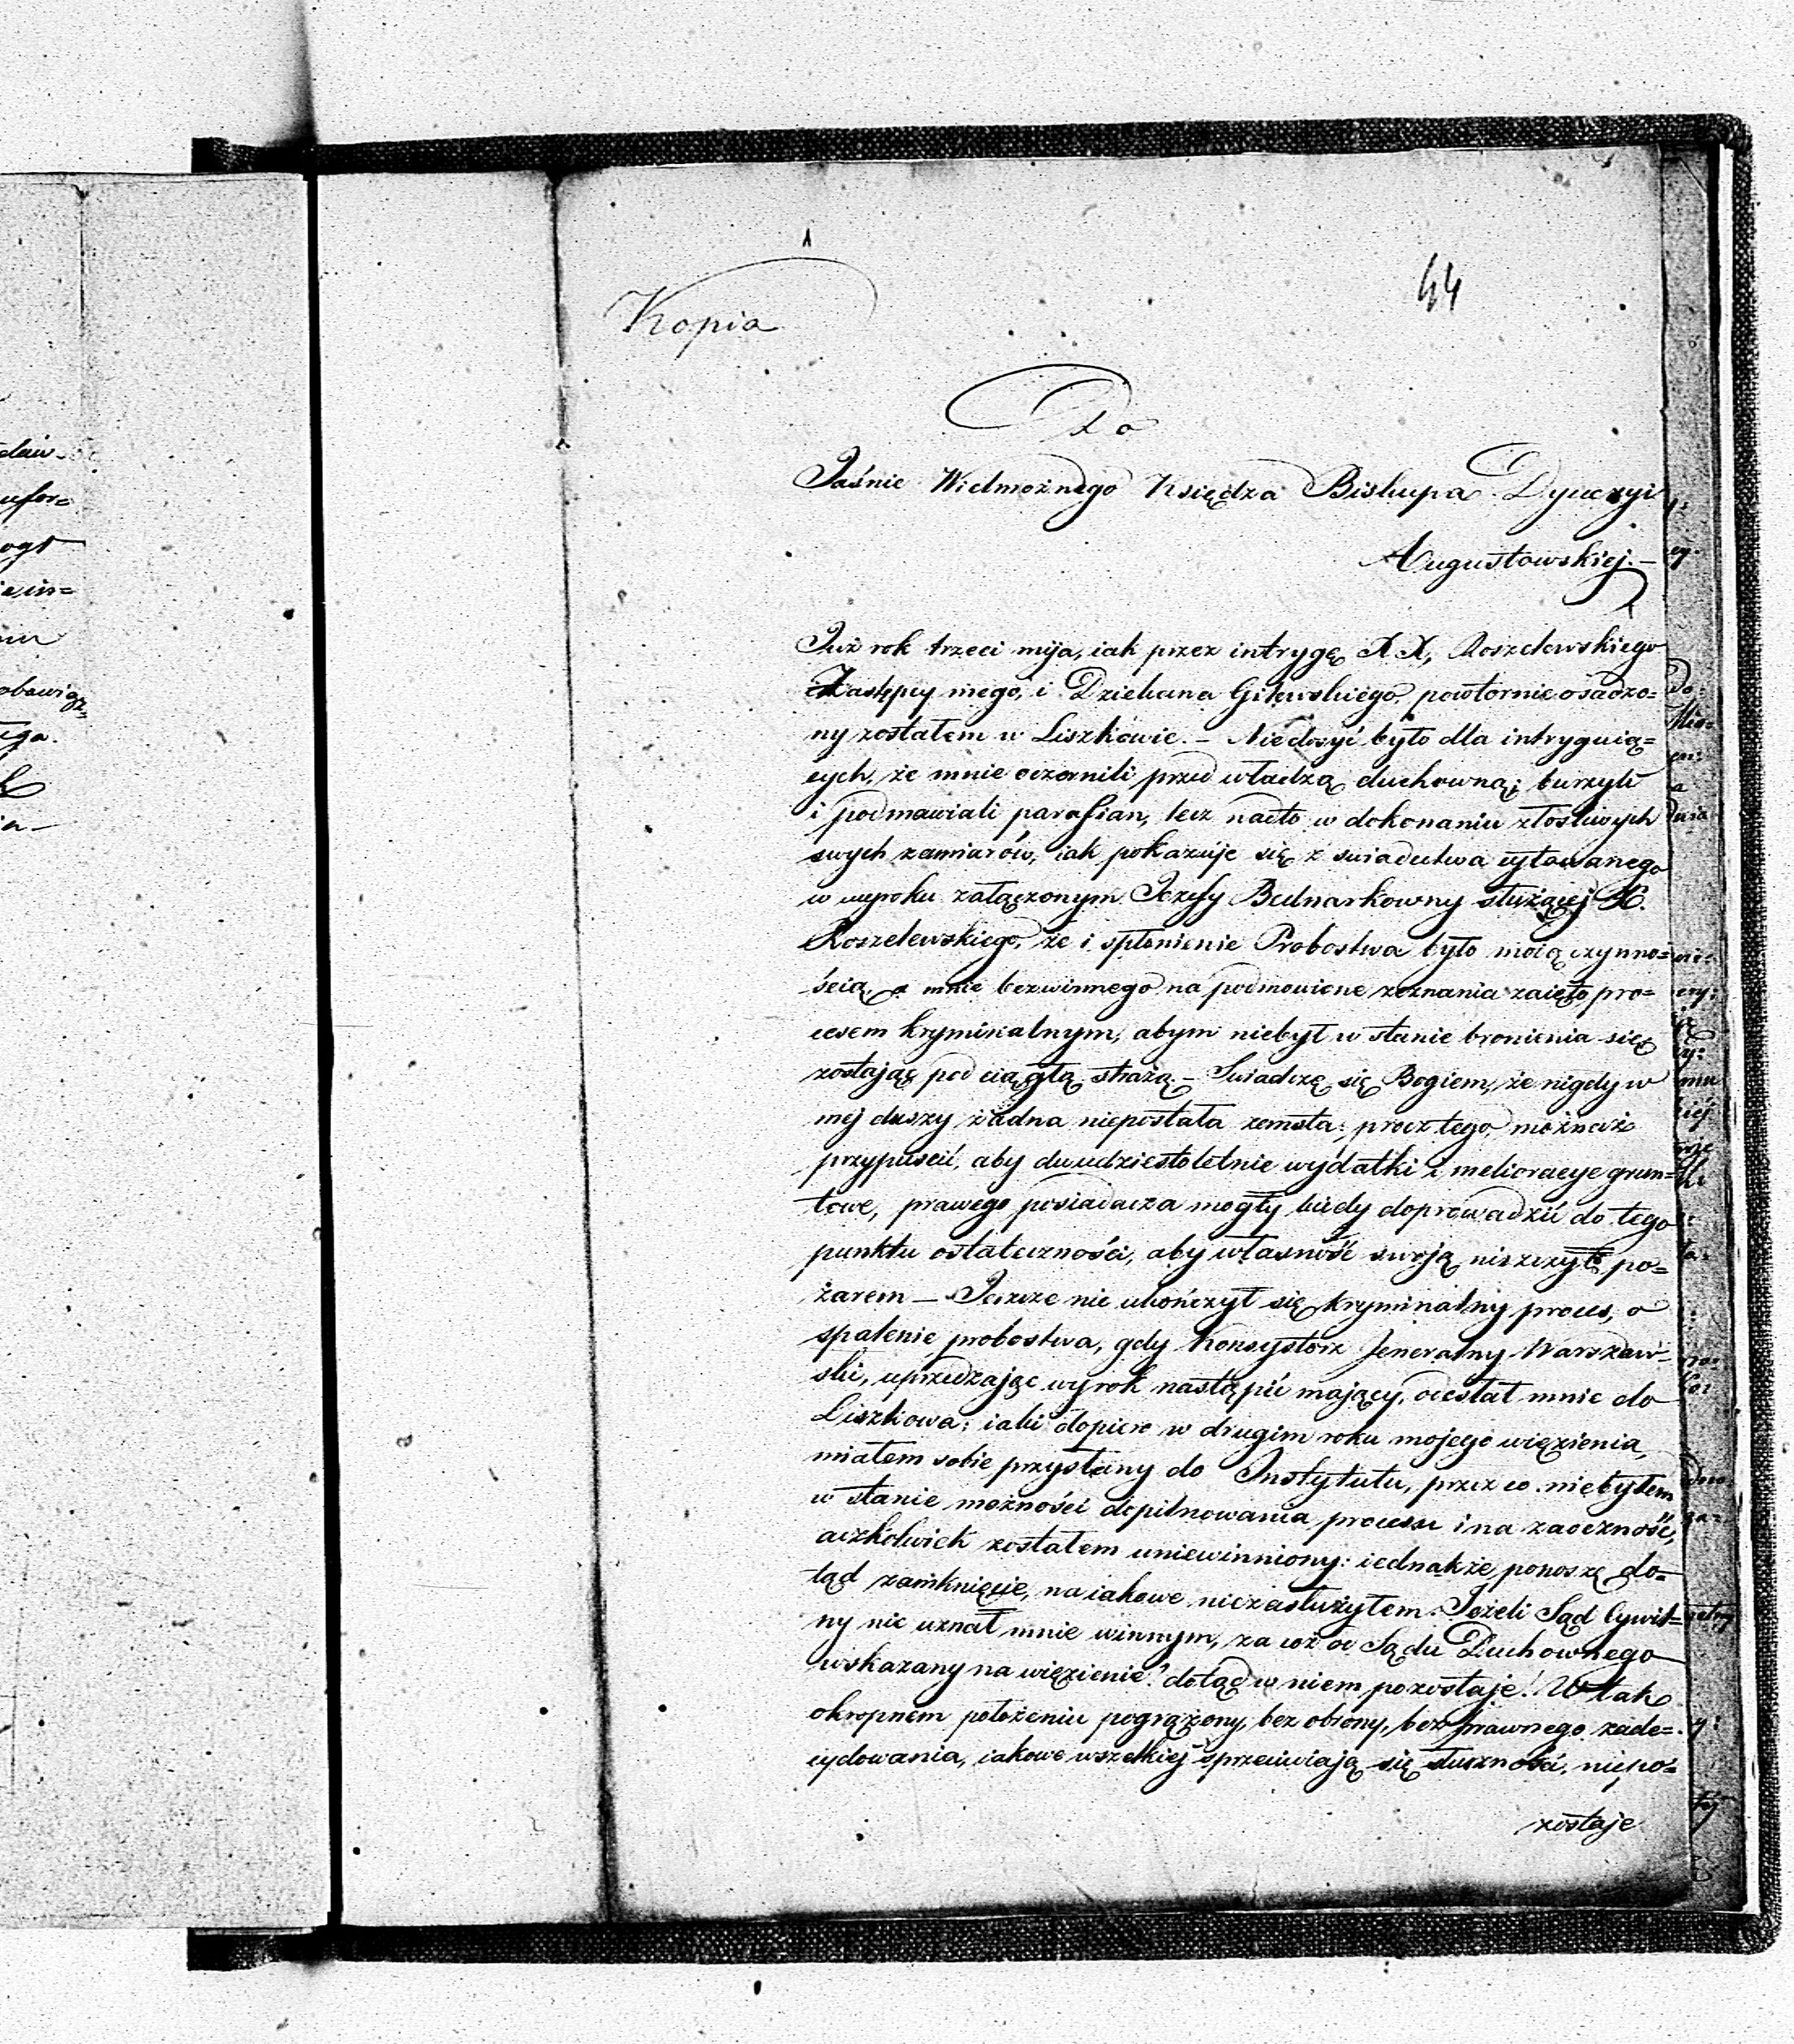 44
Kopia
Do
Jaśnie Wielmożnego Księdza Biskupa Dyecezyi
Augustowskiej. —
Już rok trzeci mija, iak przez intrygę XX, Roszelewskiego
Zastępcy mego, i Dziekana powtornie osadzo=
ny zostałem w Liszkowie. — Niedosyć było dla intryguią=
cych, że mnie oczernili przed władzą duchowną; burzyli
i podmawiali parafian, lecz nadto w dokonaniu złośliwych
swych zamiarów, iak pokazuje się z swiadectwa cytowanego
w wyroku załączonym Jozefy Bednarkowny służącej X.
Roszelewskiego, że i spłonienie Probostwa było moią czynno=
ścią, a mnie bezwinnego na podmowione zeznania zaięto pro=
cesem kryminalnym, abym niebył w stanie bronienia się
zostając pod ciągłą strażą. — Swiadczę się Bogiem, że nigdy w
mej duszy żadna niepostała zemsta; procz tego, możnaż
przypuścić, aby dwudziestoletnie wydatki i melioracye grun=
towe, prawego posiadacza mogły kiedy doprowadzić do tego
punktu ostateczności, aby własność swoją niszczył po=
żarem — Jeszcze nie ukończył się kryminalny proces, o
spalenie probostwa, gdy Konsystorz Jeneralny Warszaw=
ski, uprzedzając wyrok nastąpić mający, odesłał mnie do
Liszkowa; iaki dopiero w drugim roku mojego więzienia,
miałem sobie przysłany do Instytutu, przez co niebyłem
w stanie możności dopilnowania processu i na zaoczność,
aczkolwiek zostałem uniewinniony: iednakże ponoszę do=
tąd zamknięcie, na iakowe niezasłużyłem. Jeżeli Sąd Cywil=
ny nie uznał mnie winnym, za coż od Sądu Duchownego
wskazany na więzienie? dotąd w niem pozostaję! W tak
okropnem położeniu pogrążony, bez obrony, bez prawnego zade=
cydowania, iakowe wszelkiej sprzeciwiają się słuszności, niepo=
zostaje